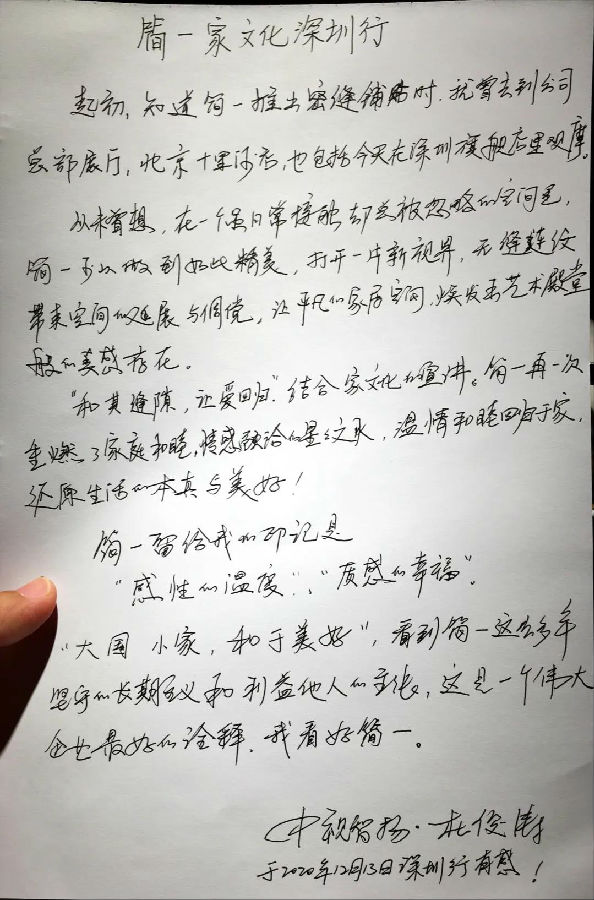 简一家文化深圳行
起初，知道简一推出密缝铺贴时，我曾去到公司
总部展厅，北京十里河店，也包括今天在深圳旗舰店里观摩。
从未曾想，在一个虽日常接触却总被忽略的空间里，
简一可以做到如此精美，打开一片新视界，无缝连纹
带来空间的延展与倜傥，让平凡的家居空间，焕发出艺术殿堂
般的美感存在。
"和其缝隙，让爱回归"，结合家文化的宣讲。简一再一次
重燃了家庭和睦，情感融洽的星火，温情和睦回归于家，
还原生活的本真与美好！
简一留给我的印记是
"感性的温度"、"质感的幸福"。
"大国 小家，和于美好"，看到简一这么多年
坚守的长期主义和利益他人的主张，这是一个伟大
企业最好的诠释，我看好简一。
中视智扬·杜俊涛
于2020年12月13日深圳行有感！